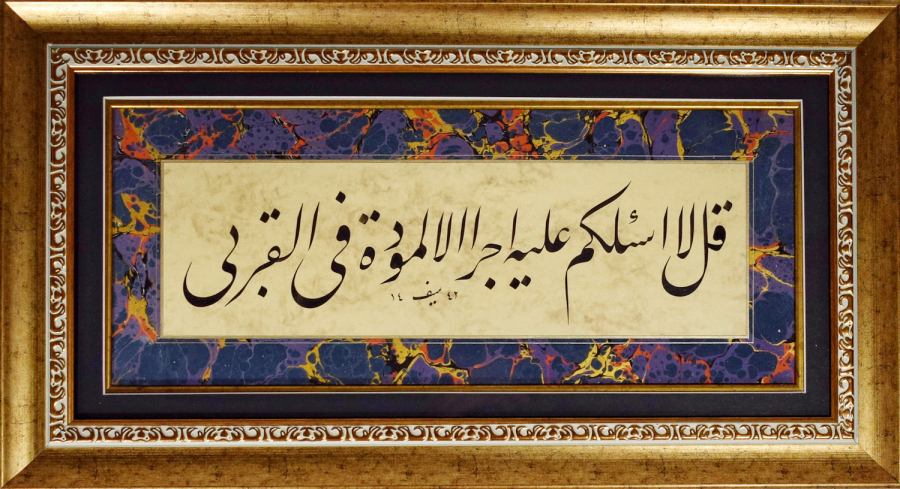 قل لا اسئلكم عليه اجرا الا المودة فى القربى
سيف ١٤٤٢